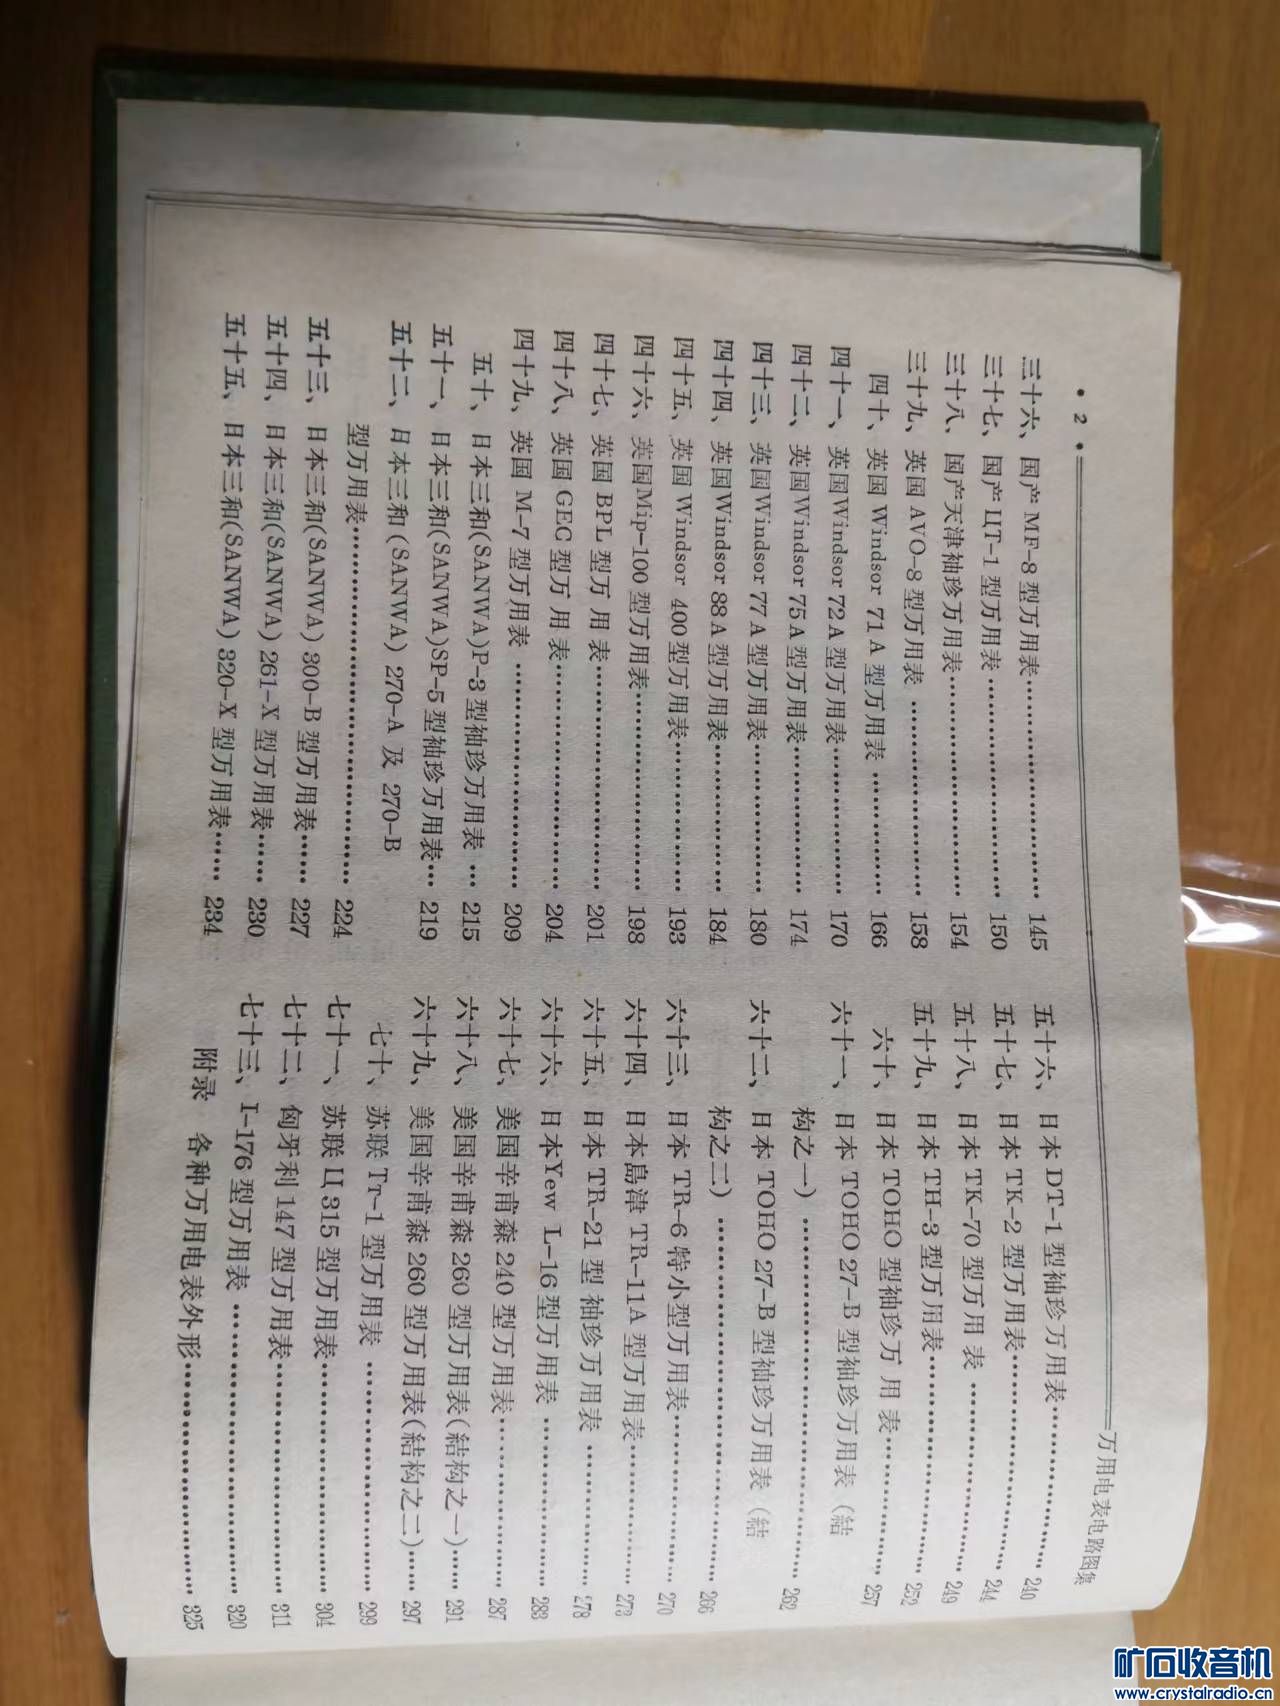 • 2 •
万用电表电路图集
三十六、国产MF-8型万用表…………………… 145
三十七、国产ЦT-1型万用表………………… 150
三十八、国产天津袖珍万用表………………… 154
三十九、英国AVO-8型万用表 ……………… 158
四十、英国Windsor 71A型万用表 ………… 166
四十一、英国Windsor 72A型万用表………… 170
四十二、英国Windsor 75A型万用表………… 174
四十三、英国Windsor 77A型万用表………… 180
四十四、英国Windsor 88A型万用表………… 184
四十五、英国Windsor 400型万用表………… 193
四十六、英国Mip-100型万用表……………… 198
四十七、英国BPL型万用表…………………… 201
四十八、英国GEC型万用表…………………… 204
四十九、英国M-7型万用表 ………………… 209
五十、日本三和(SANWA)P-3型袖珍万用表 … 215
五十一、日本三和(SANWA)SP-5型袖珍万用表… 219
五十二、日本三和(SANWA) 270-A及270-B
型万用表………………………………… 224
五十三、日本三和(SANWA) 300-B型万用表…… 227
五十四、日本三和(SANWA) 261-X型万用表…… 230
五十五、日本三和(SANWA) 320-X型万用表…… 234
五十六、日本DT-1型袖珍万用表……………… 240
五十七、日本TK-2型万用表…………………… 244
五十八、日本TK-70型万用表 ………………… 249
五十九、日本TH-3型万用表…………………… 252
六十、日本TOHO型袖珍万用表……………… 257
六十一、日本TOHO 27-B型袖珍万用表（結
构之一）………………………………… 262
六十二、日本TOHO 27-B型袖珍万用表（結
构之二）………………………………… 266
六十三、日本TR-6特小型万用表……………… 270
六十四、日本島津TR-11A型万用表…………… 273
六十五、日本TR-21型袖珍万用表 …………… 278
六十六、日本Yew L-16型万用表 ……………… 283
六十七、美国辛甫森240型万用表……………… 287
六十八、美国辛甫森260型万用表(結构之一)…… 291
六十九、美国辛甫森260型万用表(結构之二)…… 297
七十、苏联Tт-1型万用表 ………………… 299
七十一、苏联Ц315型万用表…………………… 304
七十二、匈牙利147型万用表…………………… 311
七十三、I-176型万用表 ……………………… 320
附录 各种万用电表外形…………………… 325
矿石收音机
www.crystalradio.cn